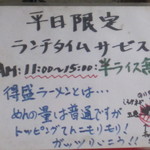 平日限定
ランチタイムサービス
AM:11:00~15:00:半ライス
得盛ラーメンとは…
めんの量は普通ですが
トッピングてんこモリ!
ガッツリいこう!!